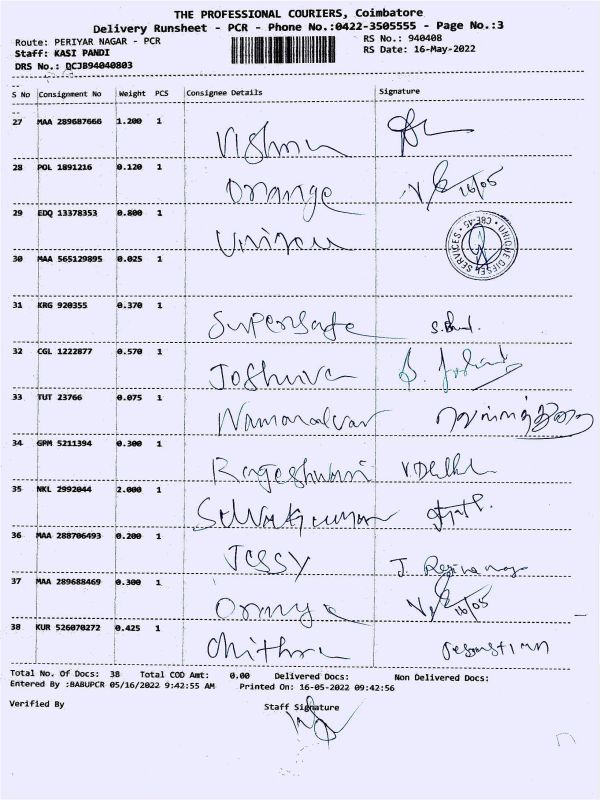 THE PROFESSIONAL COURIERS, Coimbatore
Delivery Runsheet - PCR - Phone No.:0422-3505555 - Page No.:3
Route: PERIYAR NAGAR - PCR
RS No.: 940408
Staff: KASI PANDI
RS Date: 16-May-2022
DRS No.: DCJB94040803
S No Consignment No Weight PCS Consignee Details Signature
27 MAA 289687666 1.200 1
Vishnu
28 POL 1891216 0.120 1
Orange V 16/05
29 EDQ 13378353 0.800 1
UNIQUE DIESEL SERVICES CBE-45
30 MAA 565129895 0.025 1
31 KRG 920355 0.370 1
Supersafe
32 CGL 1222877 0.570 1
Joshuva
33 TUT 23766 0.075 1
34 GPM 5211394 0.300 1
35 NKL 2992044 2.000 1
Selvakumar
36 MAA 288706493 0.200 1
Jessy
37 MAA 289688469 0.300 1
V 16/05
38 KUR 526070272 0.425 1
Chithra
Total No. Of Docs: 38 Total COD Amt: 0.00 Delivered Docs: Non Delivered Docs:
Entered By :BABUPCR 05/16/2022 9:42:55 AM Printed On: 16-05-2022 09:42:56
Verified By Staff Signature